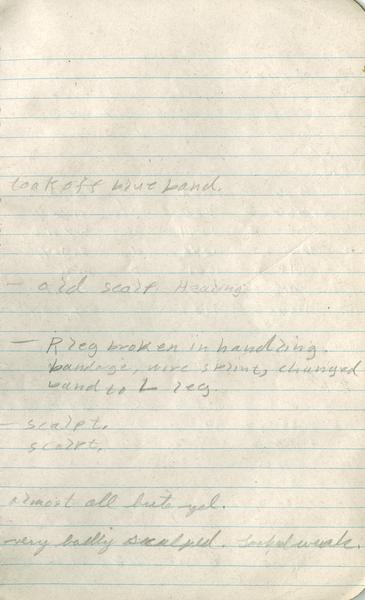 took off blue band.
- old scalp. Healing
- R leg broken in handling.
bandage, wire splint, changed
band to L leg.
- scalpt.
scalpt.
almost all but yel.
very badly scalped. Looked weak.